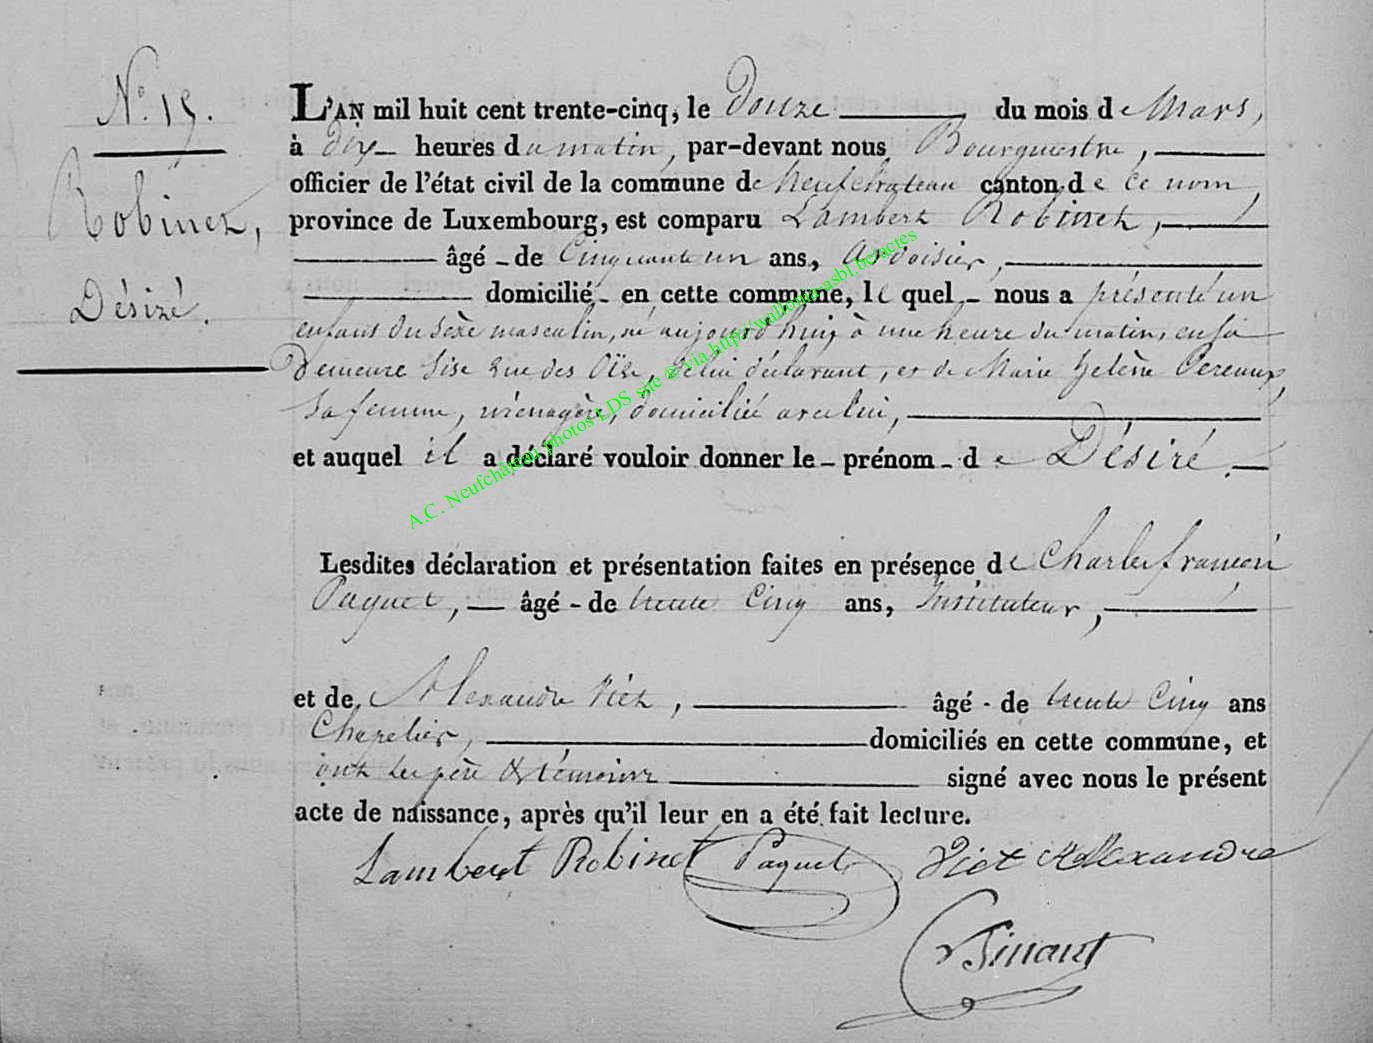 N.° 15.
Robinet,
Désiré.
L'AN mil huit cent trente-cinq, le Douze du mois de Mars,
à dix heures du matin, par-devant nous Bourgmestre,
officier de l'état civil de la commune de Neufchateau canton de ce nom,
province de Luxembourg, est comparu Lambert Robinet,
âgé de Cinquante un ans, Ardoisier,
domicilié en cette commune, lequel nous a présenté un
enfant du sexe masculin, né aujourd'huy à une heure du matin, en sa
Demeure Sise rue des, de lui déclarant, et de Marie helène
Sa femme, ménagère, domiciliée avec lui,
et auquel il a déclaré vouloir donner le prénom de Désiré.
Lesdites déclaration et présentation faites en présence de Charles françois
Paquet, âgé de trente Cinq ans, Instituteur,
et de Alexandre Viet, âgé de trente Cinq ans
Chapelier, domiciliés en cette commune, et
ont les père & témoins signé avec nous le présent
acte de naissance, après qu'il leur en a été fait lecture.
Lambert Robinet Paquet Viet Alexandre
A.C. Neufchâteau photos LDS site @ via http://wallonia-asbl.be/actes